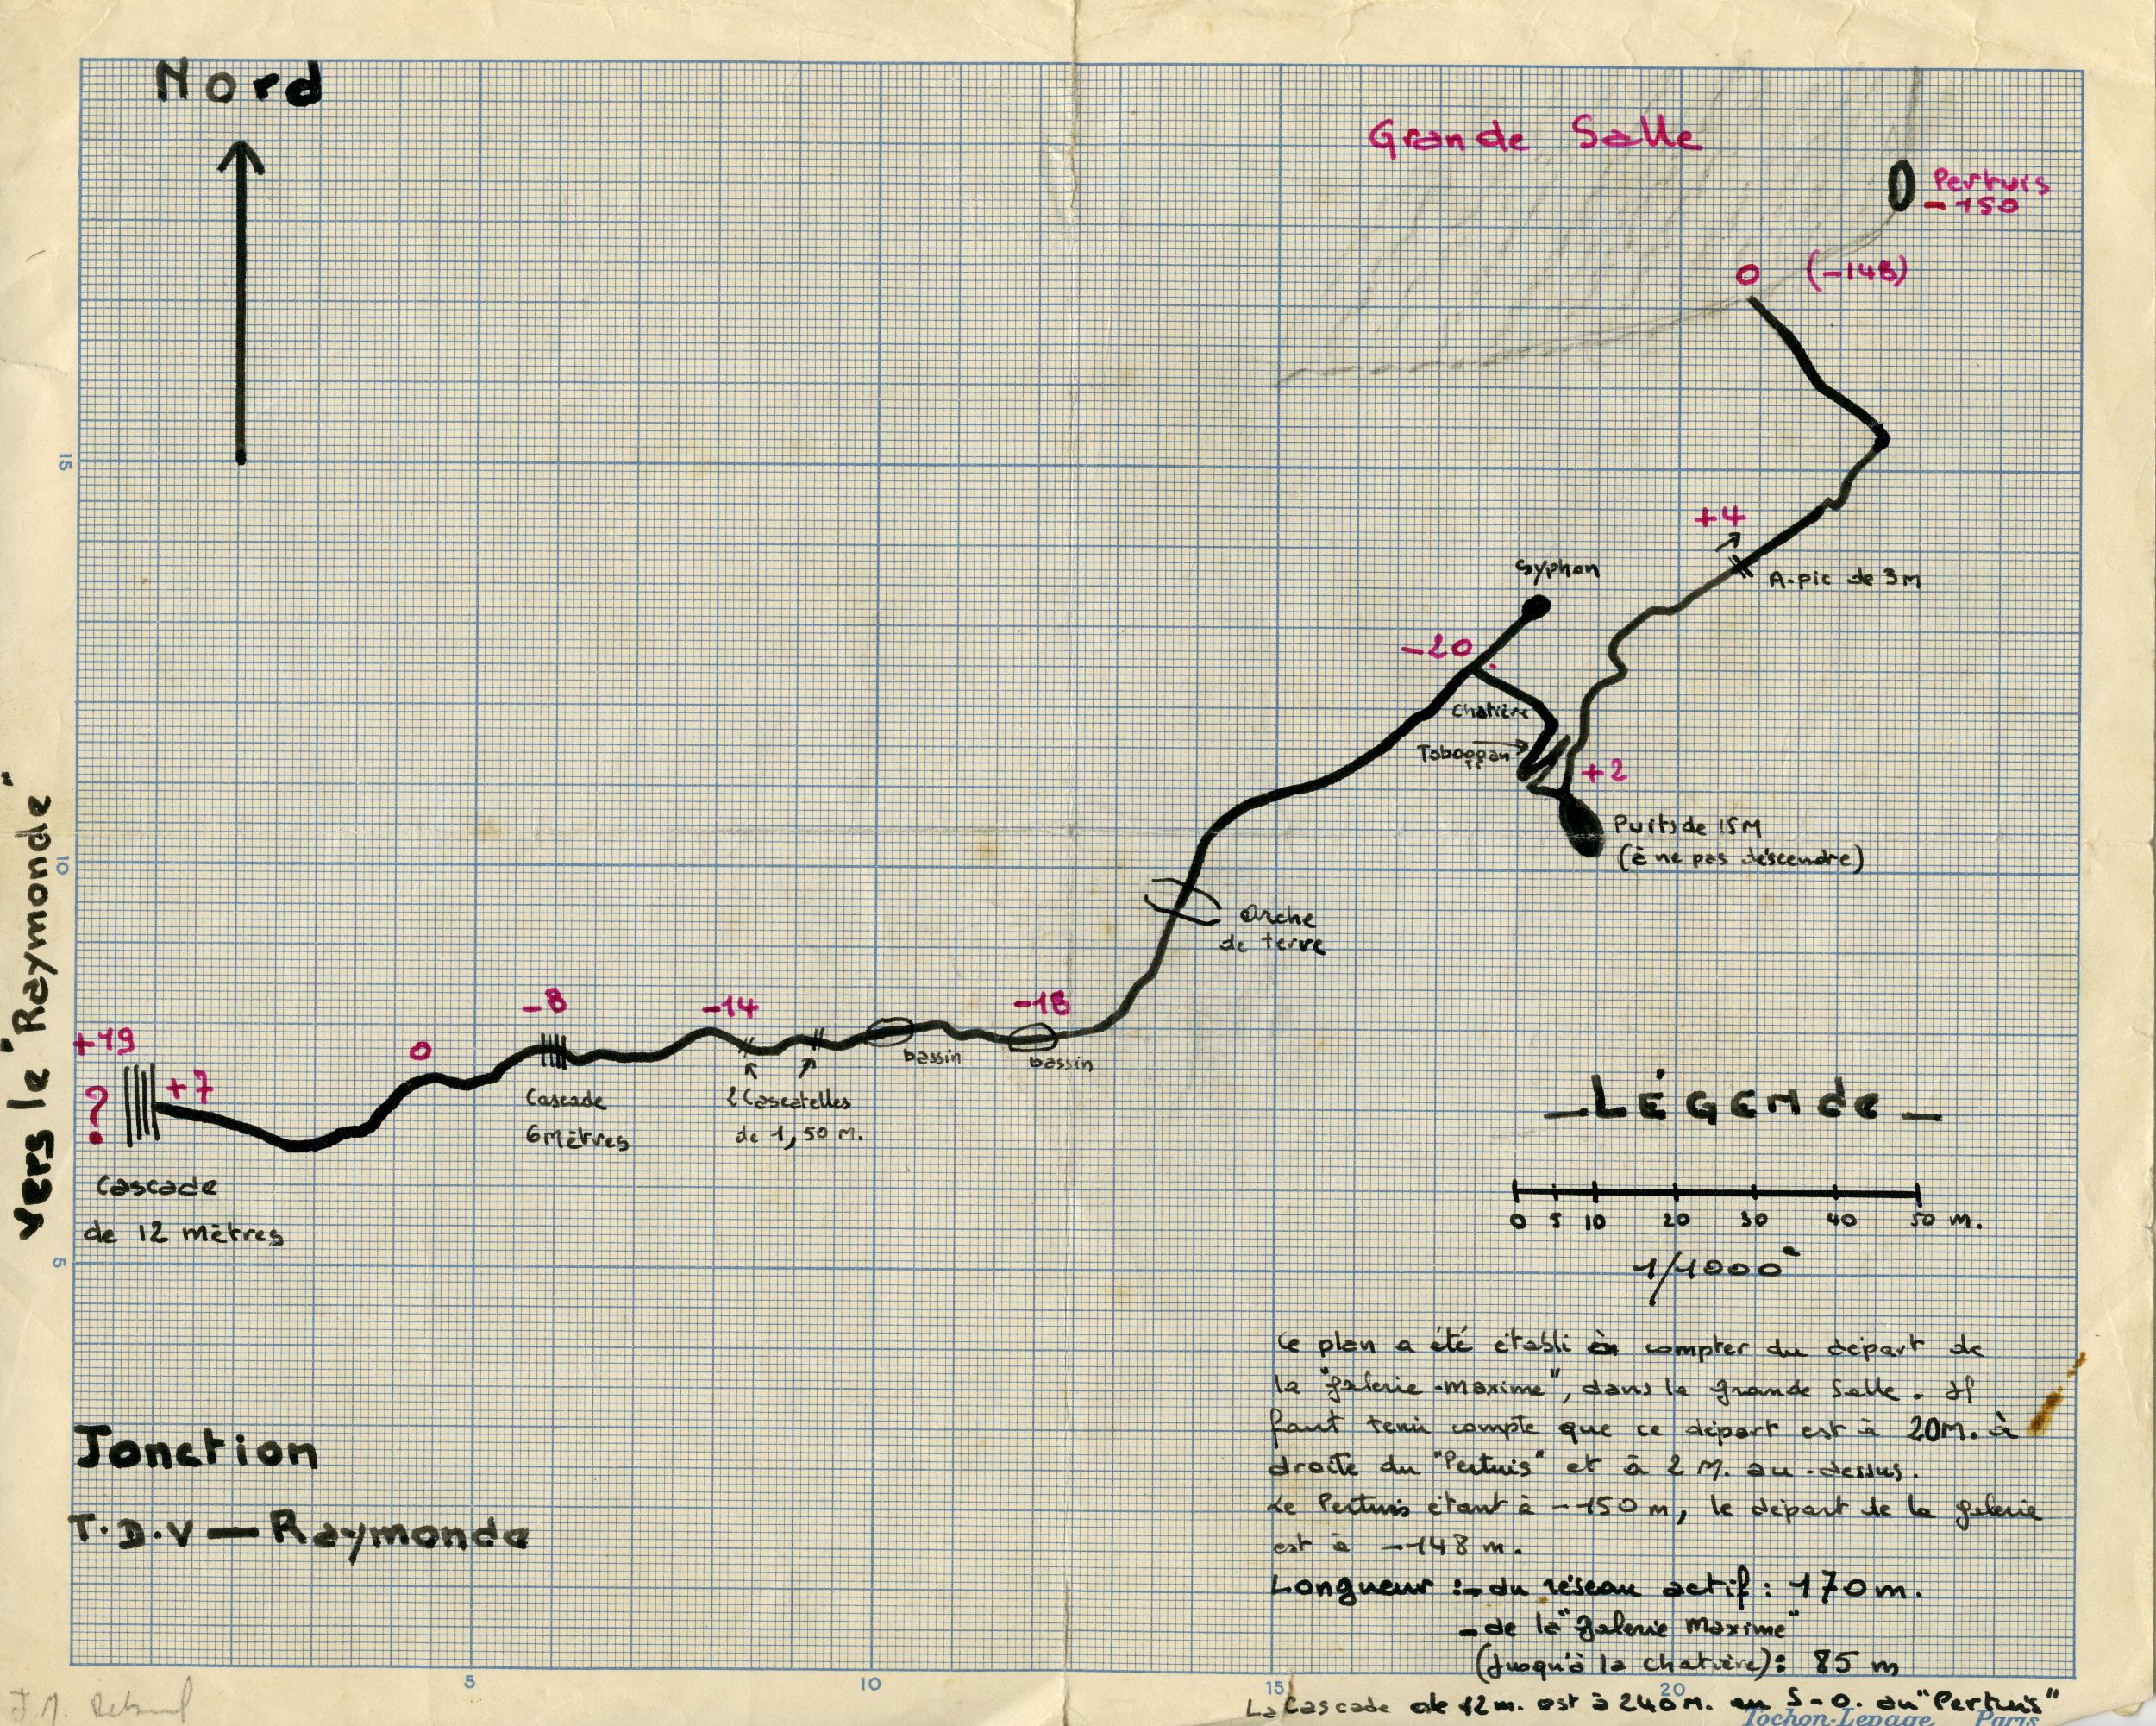 Nord
Grande Salle
Pertuis
-150
0 (-148)
15
+4
A-pic de 3m
syphon
-20
chatière
Toboggan
+2
Puits de 15M
(à ne pas descendre)
10
Arche
de terre
vers le "Raymonde"
-8
-14
-18
+19
0
+7
?
bassin
bassin
Cascade
6 mètres
2 Cascatelles
de 1,50 M.
Cascade
de 12 mètres
5
_LÉGENDE_
0 5 10 20 30 40 50 m.
1/1000e
Ce plan a été établi à compter du départ de
la "galerie-maxime", dans la grande Salle. Il
faut tenir compte que ce départ est à 20M. à
droite du "Pertuis" et à 2 M. au-dessus.
Le Pertuis étant à -150 m, le départ de la galerie
est à -148 m.
Jonction
T.D.V — Raymonde
Longueur :- du réseau actif : 170 m.
- de la "galerie Maxime"
(jusqu'à la chatière) : 85 m
5
10
15
20
La Cascade de 12m. est à 240M. en S-O. du "Pertuis"
Tochon-Lepage Paris